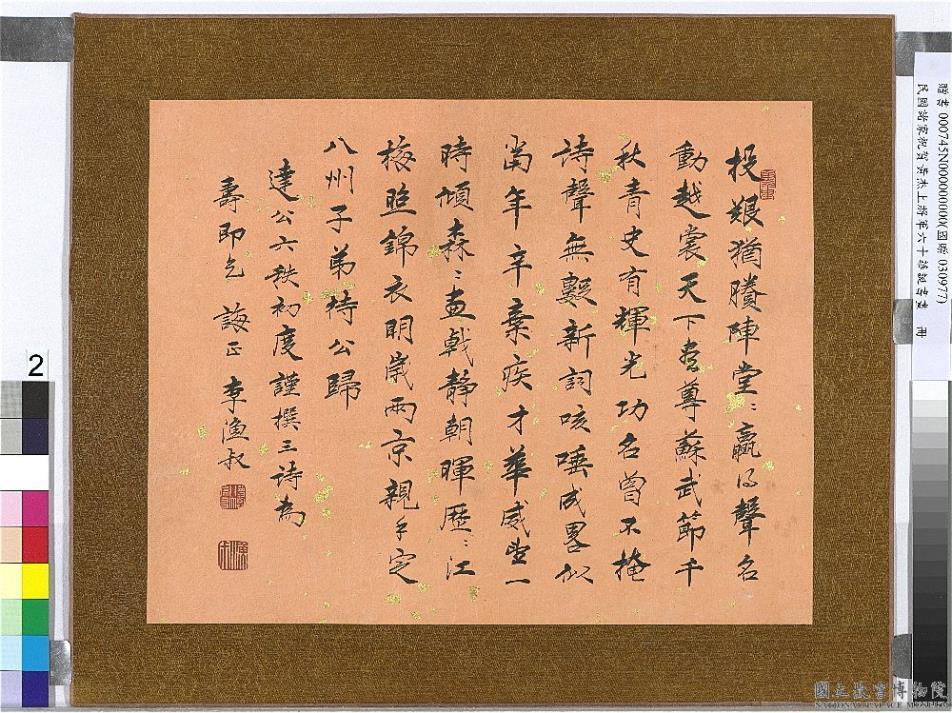 投艱猶賸陣堂〻贏得聲名
動越裳天下尊蘇武節千
秋青史有輝光功名曾不掩
詩聲無斁新詞咳唾成畧似
當年辛棄疾才華威望一
時傾森〻畫戟靜朝暉歷〻江
梅照錦衣明歲兩京親手定
八州子弟待公歸
達公六秩初度謹撰三詩為
壽即乞 誨正 李漁叔
贈書 000745N000000000(國贈 030977)
民國諸家祝賀黃杰上將軍六十誕辰書畫 冊
2
國立故宮博物院
NATIONAL PALACE MUSEUM